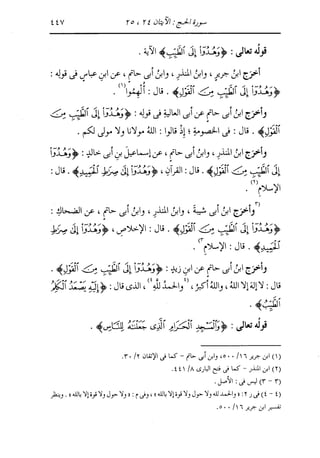 سورة الحج : الآيتان ٢٤ ، ٢٥ ٤٤٧
قوله تعالى : ﴿وَهُدُوٓا۟ إِلَى ٱلطَّيِّبِ﴾ الآية .
أخرج ابنُ جريرٍ ، وابنُ المنذرِ ، وابنُ أبى حاتمٍ ، عن ابنِ عباسٍ فى قولِه :
﴿وَهُدُوٓا۟ إِلَى ٱلطَّيِّبِ مِنَ ٱلْقَوْلِ﴾ . قال : أُلْهِموا(١) .
وأخرَج ابنُ أبى حاتمٍ عن أبى العاليةِ فى قولِه : ﴿وَهُدُوٓا۟ إِلَى ٱلطَّيِّبِ مِنَ
ٱلْقَوْلِ﴾ . قال : فى الخصومةِ ؛ إذ قالوا : اللهُ مولانا ولا مولى لكم .
وأخرَج ابنُ المنذرِ ، وابنُ أبى حاتمٍ ، عن إسماعيلَ بنِ أبى خالدٍ : ﴿وَهُدُوٓا۟
إِلَى ٱلطَّيِّبِ مِنَ ٱلْقَوْلِ﴾ . قال : القرآنِ ، ﴿وَهُدُوٓا۟ إِلَىٰ صِرَٰطِ ٱلْحَمِيدِ﴾ . قال :
الإسلامِ(٢) .
(٣)وأخرَج ابنُ أبى شيبةَ ، وابنُ المنذرِ ، وابنُ أبى حاتمٍ ، عن الضحاكِ :
﴿وَهُدُوٓا۟ إِلَى ٱلطَّيِّبِ مِنَ ٱلْقَوْلِ﴾ . قال : الإخلاصِ ، ﴿وَهُدُوٓا۟ إِلَىٰ صِرَٰطِ
ٱلْحَمِيدِ﴾ . قال : الإسلامِ(٣) .
وأخرَج ابنُ أبى حاتمٍ عن ابنِ زيدٍ : ﴿وَهُدُوٓا۟ إِلَى ٱلطَّيِّبِ مِنَ ٱلْقَوْلِ﴾ .
قال : لا إلهَ إلا اللهُ ، واللهُ أكبرُ ، (٤)والحمدُ للهِ(٤) ، الذى قال : ﴿إِلَيْهِ يَصْعَدُ ٱلْكَلِمُ
ٱلطَّيِّبُ﴾ .
قوله تعالى : ﴿وَٱلْمَسْجِدِ ٱلْحَرَامِ ٱلَّذِى جَعَلْنَٰهُ لِلنَّاسِ﴾ .
(١) ابن جرير ١٦/ ٥٠٠، وابن أبى حاتم - كما فى الإتقان ٢/ ٣٠.
(٢) ابن المنذر - كما فى فتح البارى ٨/ ٤٤١.
(٣ - ٣) ليس فى : الأصل .
(٤ - ٤) فى ر ٢: « والحمد لله ولا حول ولا قوة إلا بالله » ، وفى م : « ولا حول ولا قوة إلا بالله » . وينظر
تفسير ابن جرير ١٦/ ٥٠٠.